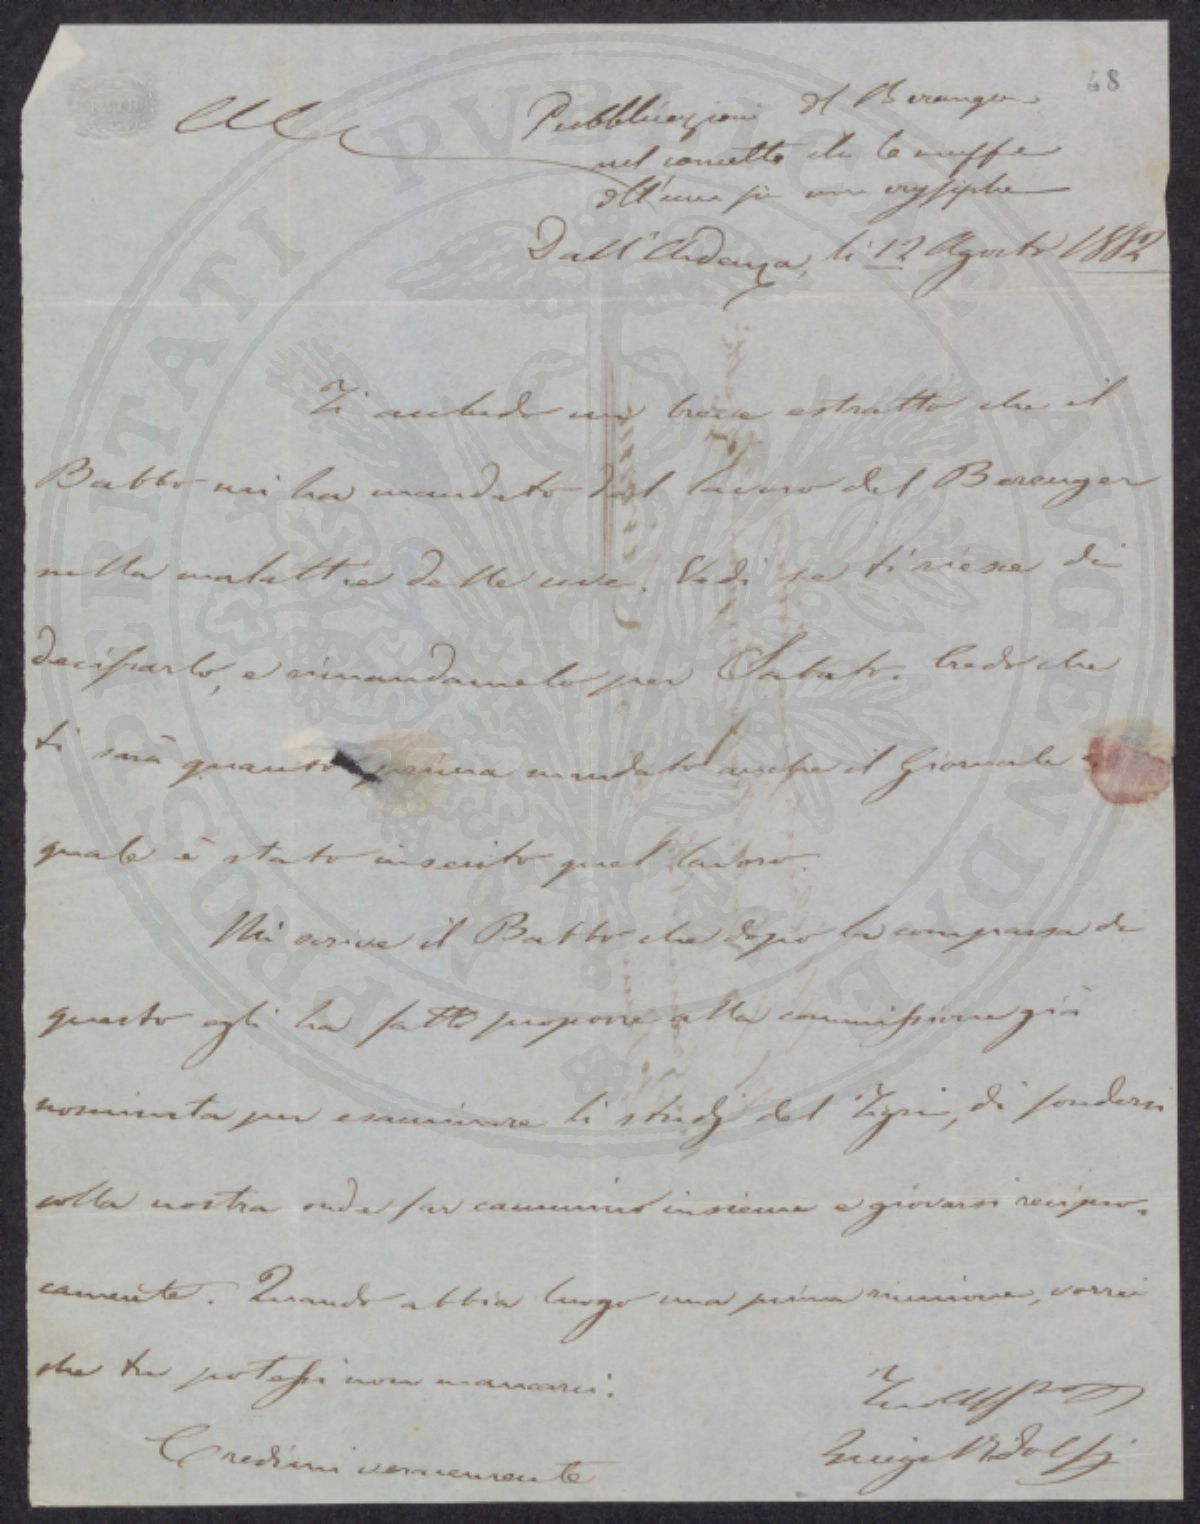 48
Pubblicazioni del Berenger
nel concetto che le muffe
dell'uva sia una erysiphe
Dall'Ardenza, li 12 Agosto 1852
Ti accludo un breve estratto che il
Babbo mi ha mandato del lavoro del Berenger
nella malattia delle uve. Vedi se ti riesce di
deciffrarlo, e rimandamelo per Sabato. Credo che
ti sarà quanto prima mandato anche il Giornale
quale è stato inserito quel lavoro.
Mi scrive il Babbo che dopo la comparsa di
questo egli ha fatto proporre alla commissione già
nominata per esaminare li studj del Tigri, di fondersi
colla nostra onde far cammino insieme e giovarsi recipro-
camente. Quando abbia luogo una prima riunione, vorrei
che tu potessi non mancarci.
Credimi veramente
Tuo Aff
Luigi Ridolfi
PROSPERITATI PVBLICAE AVGENDAE